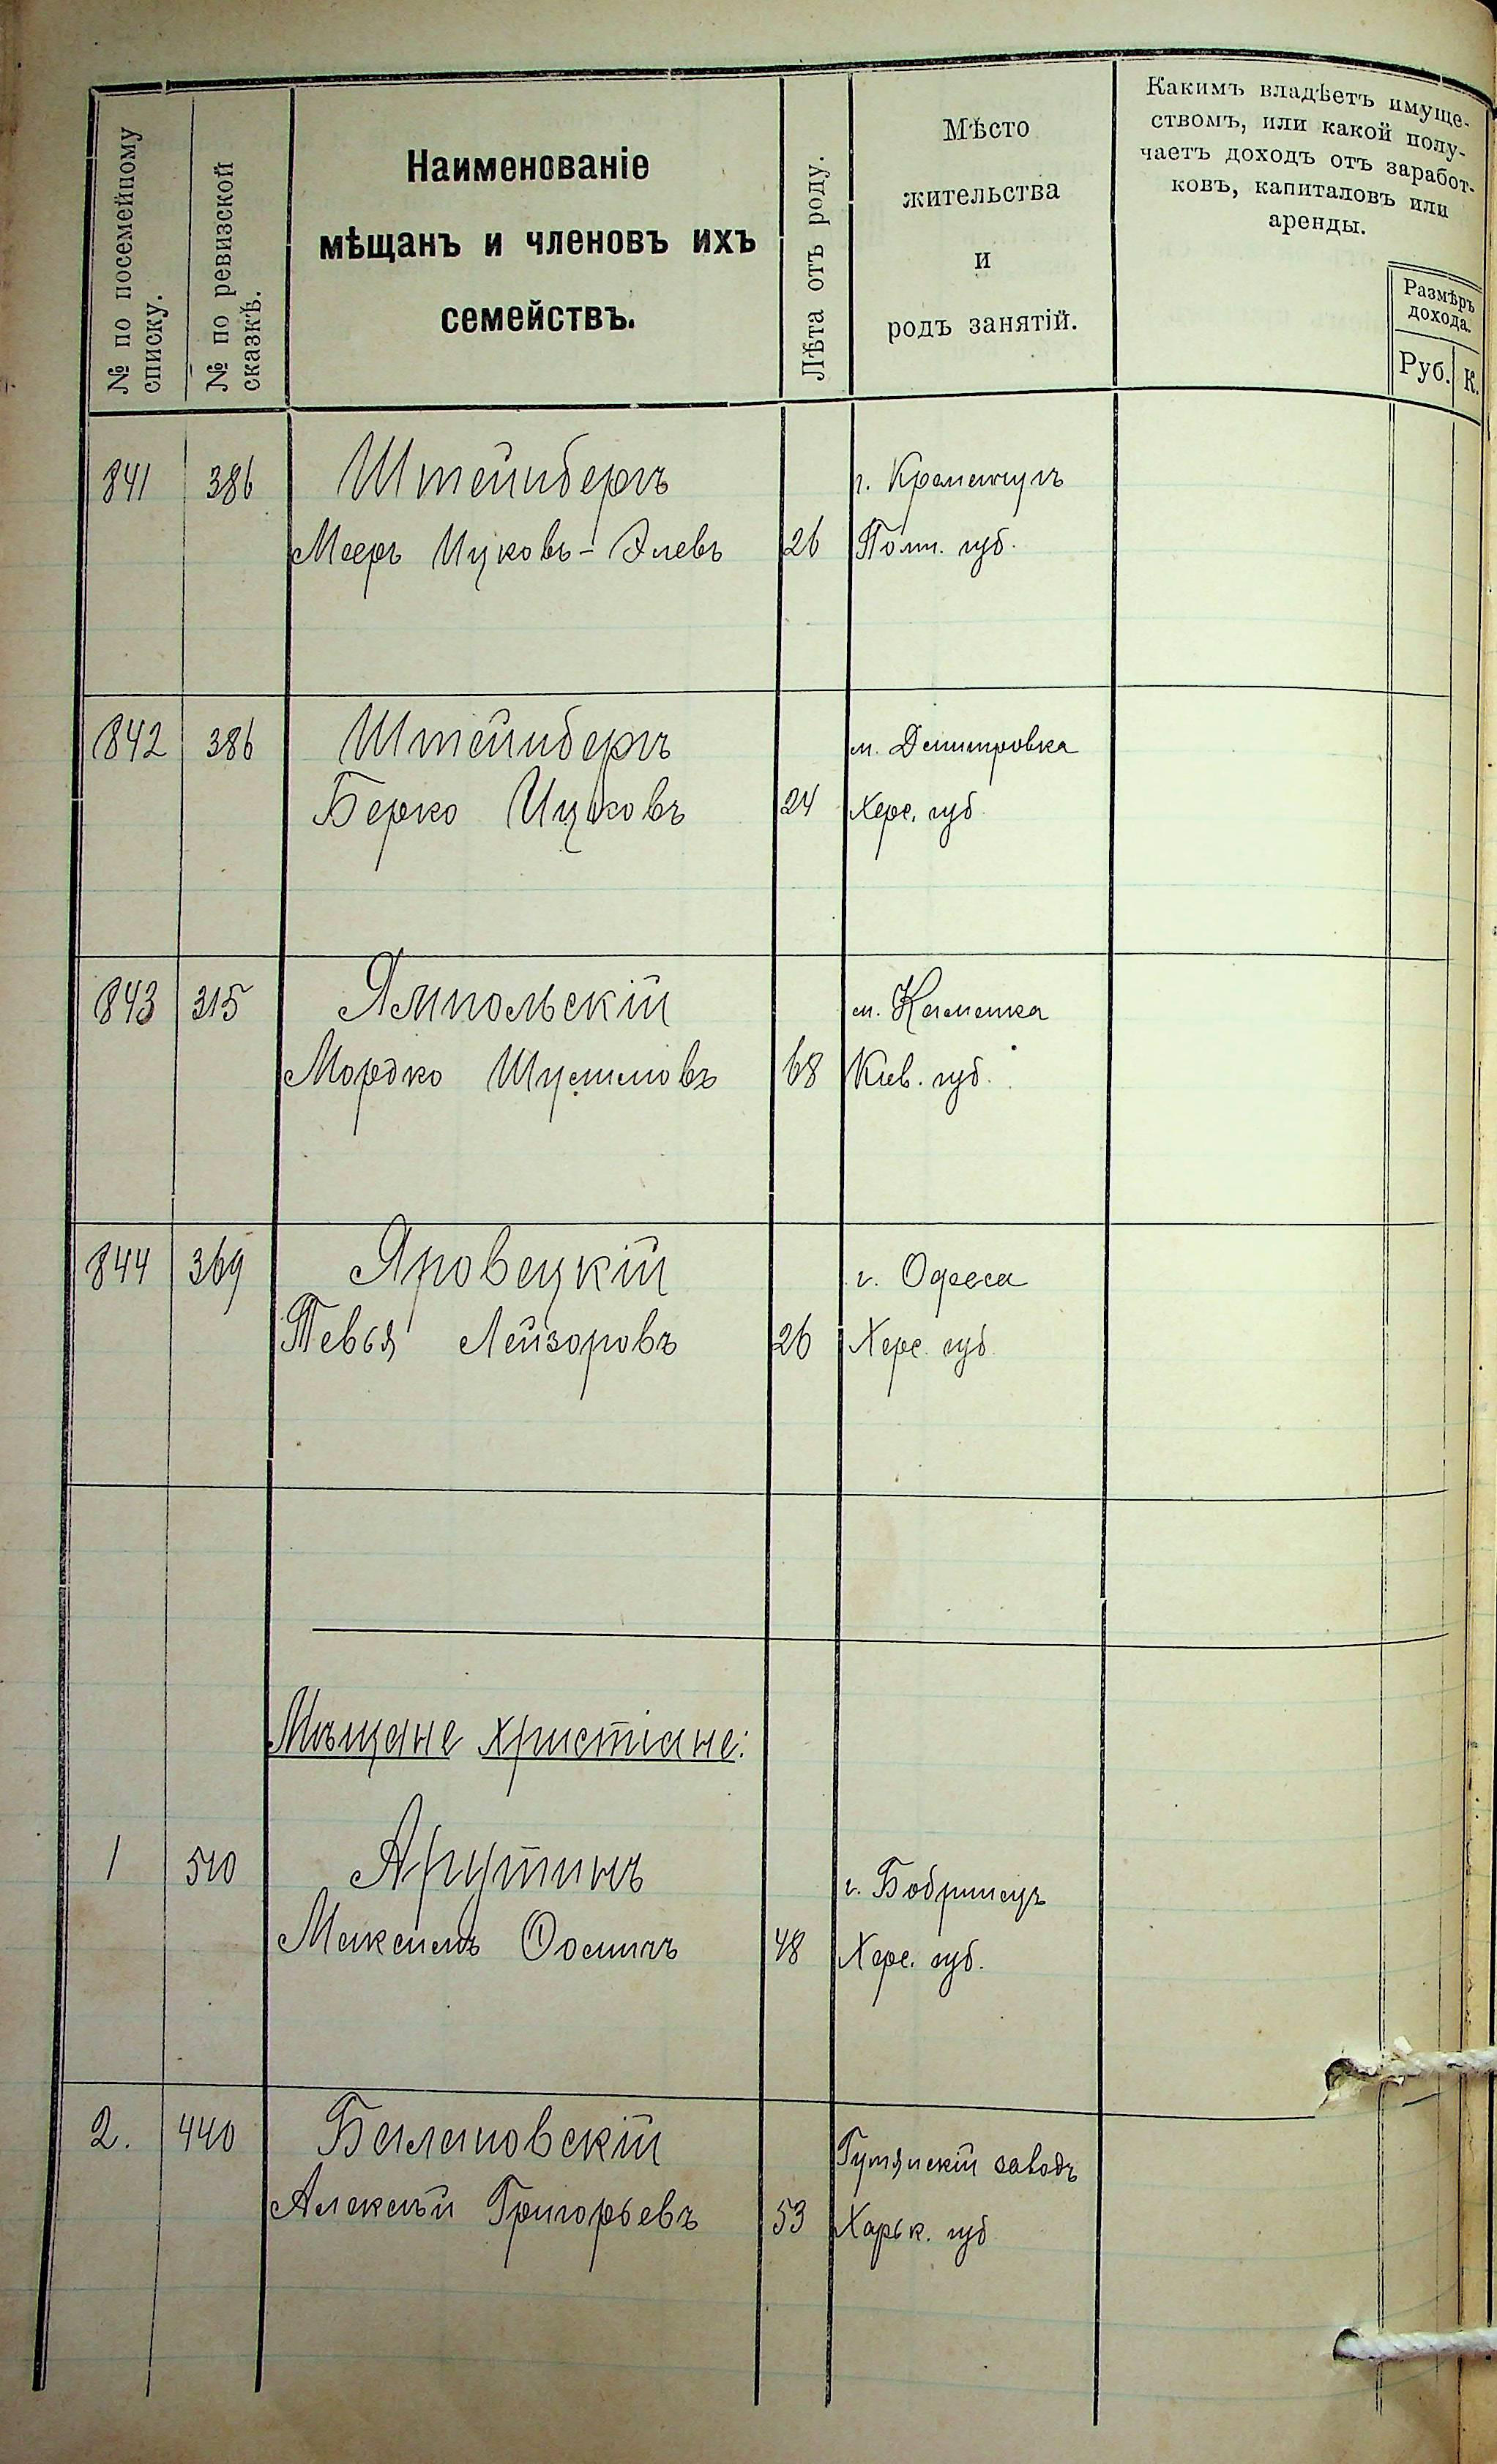 № по посемейному
списку.
№ по ревизской
сказкѣ.
Наименованіе
мѣщанъ и членовъ ихъ
семействъ.
Лѣта отъ роду.
Мѣсто
жительства
и
родъ занятій.
Какимъ владѣетъ имуще-
ствомъ, или какой полу-
чаетъ доходъ отъ заработ-
ковъ, капиталовъ или
аренды.
Размѣръ
дохода.
Руб. К.
841 386 Штейнбергъ г. Кременчугъ
Мееръ Ицковъ-Элевъ 26 Полт. губ.
842 386 Штейнбергъ м. Дмитровка
Берко Ицковъ 24 Херс. губ.
843 315 Ямпольскій м. Каменка
Мордко Шмулевъ 68 Кіев. губ.
844 369 Яровецкій г. Одесса
Тевья Лейзоровъ 26 Херс. губ.
Мѣщане христіане:
1 510 Арутинъ г. Бобринецъ
Максимъ Ѳоминъ 48 Херс. губ.
2. 440 Балановскій Гутянскій заводъ
Алексѣй Григорьевъ 53 Харьк. губ.